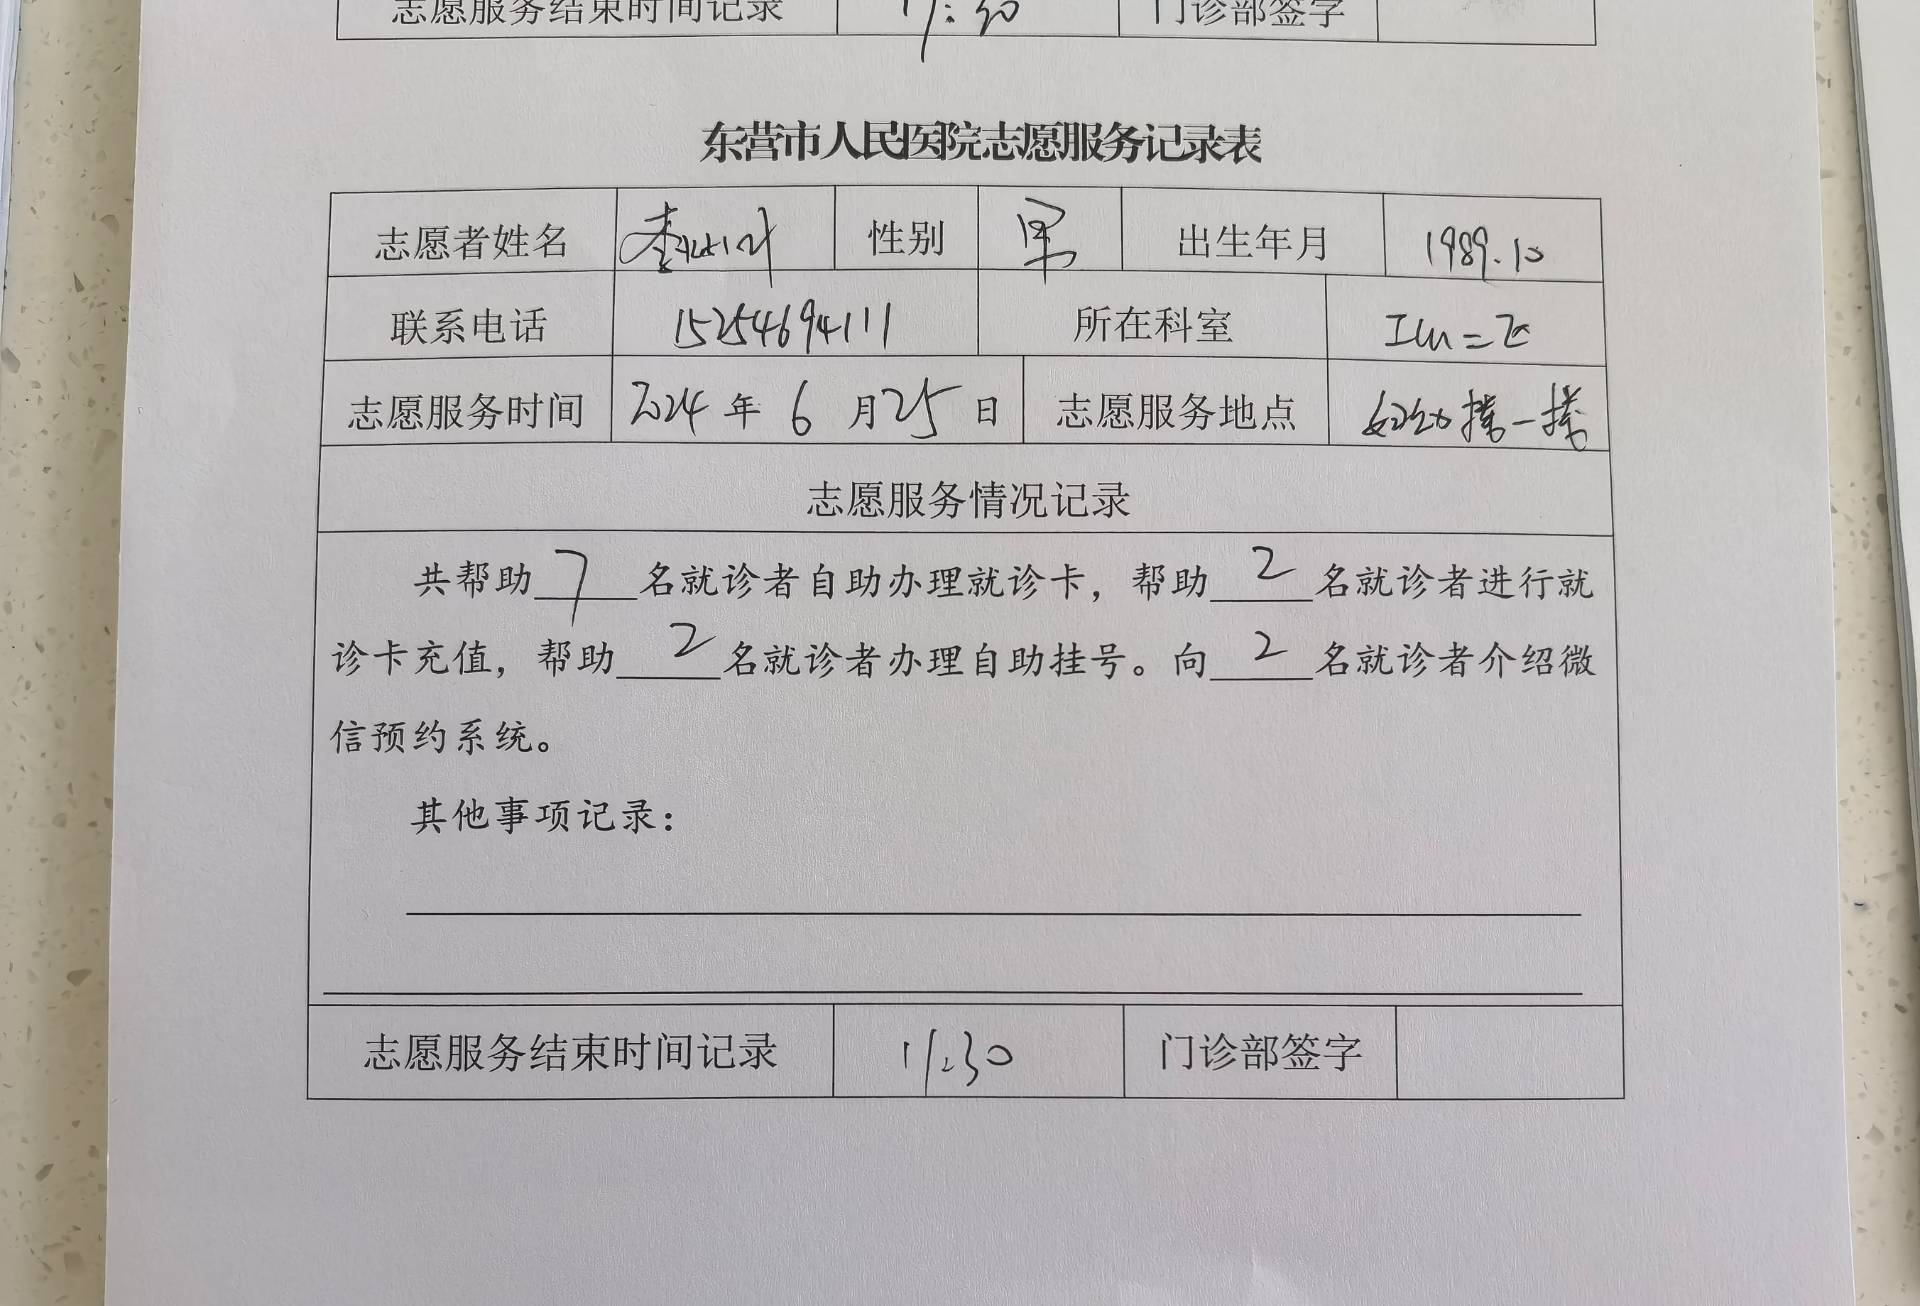 志愿服务结束时间记录 17:30 门诊部签字
东营市人民医院志愿服务记录表
志愿者姓名 性别 男 出生年月 1989.10
联系电话 15254694111 所在科室
志愿服务时间 2024年6月25日 志愿服务地点 妇幼楼一楼
志愿服务情况记录
共帮助7名就诊者自助办理就诊卡，帮助2名就诊者进行就
诊卡充值，帮助2名就诊者办理自助挂号。向2名就诊者介绍微
信预约系统。
其他事项记录：
志愿服务结束时间记录 11:30 门诊部签字